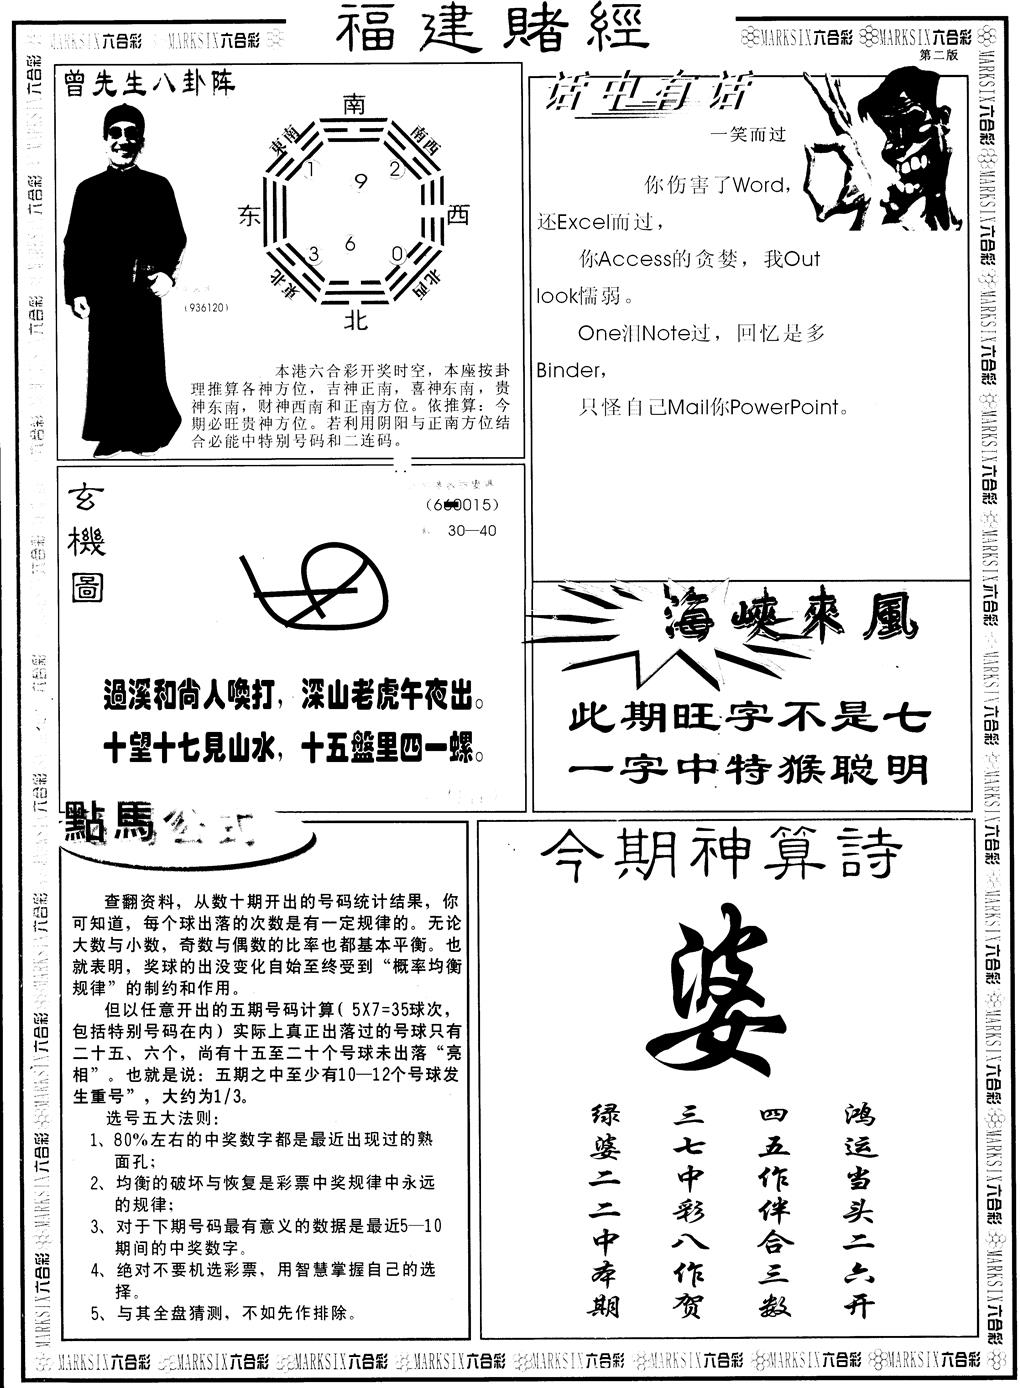 福建賭經
MARKSIX六合彩 MARKSIX六合彩
MARKSIX六合彩 MARKSIX六合彩
第二版
曾先生八卦阵
南
東南
南西
1
9
2
东
西
3
6
0
東北
北西
北
(936120)
本港六合彩开奖时空，本座按卦
理推算各神方位，吉神正南，喜神东南，贵
神东南，财神西南和正南方位。依推算：今
期必旺贵神方位。若利用阴阳与正南方位结
合必能中特别号码和二连码。
话中有话
一笑而过
你伤害了Word，
还Excel而过，
你Access的贪婪，我Out
look懦弱。
One泪Note过，回忆是多
Binder，
只怪自己Mail你PowerPoint。
玄機圖
30—40
過溪和尚人喚打，深山老虎午夜出。
十望十七見山水，十五盤里四一螺。
海峽來風
此期旺字不是七
一字中特猴聪明
點馬公式
查翻资料，从数十期开出的号码统计结果，你
可知道，每个球出落的次数是有一定规律的。无论
大数与小数，奇数与偶数的比率也都基本平衡。也
就表明，奖球的出没变化自始至终受到“概率均衡
规律”的制约和作用。
但以任意开出的五期号码计算( 5X7=35球次，
包括特别号码在内）实际上真正出落过的号球只有
二十五、六个，尚有十五至二十个号球未出落“亮
相”。也就是说：五期之中至少有10—12个号球发
生重号”，大约为1/3。
选号五大法则：
1、80%左右的中奖数字都是最近出现过的熟
面孔；
2、均衡的破坏与恢复是彩票中奖规律中永远
的规律；
3、对于下期号码最有意义的数据是最近5—10
期间的中奖数字。
4、绝对不要机选彩票，用智慧掌握自己的选
择。
5、与其全盘猜测，不如先作排除。
今期神算詩
婆
鸿运当头二六开
四五作伴合三数
三七中彩八作贺
绿婆二二中本期
MARKSIX六合彩 MARKSIX六合彩 MARKSIX六合彩 MARKSIX六合彩 MARKSIX六合彩 MARKSIX六合彩 MARKSIX六合彩 MARKSIX六合彩